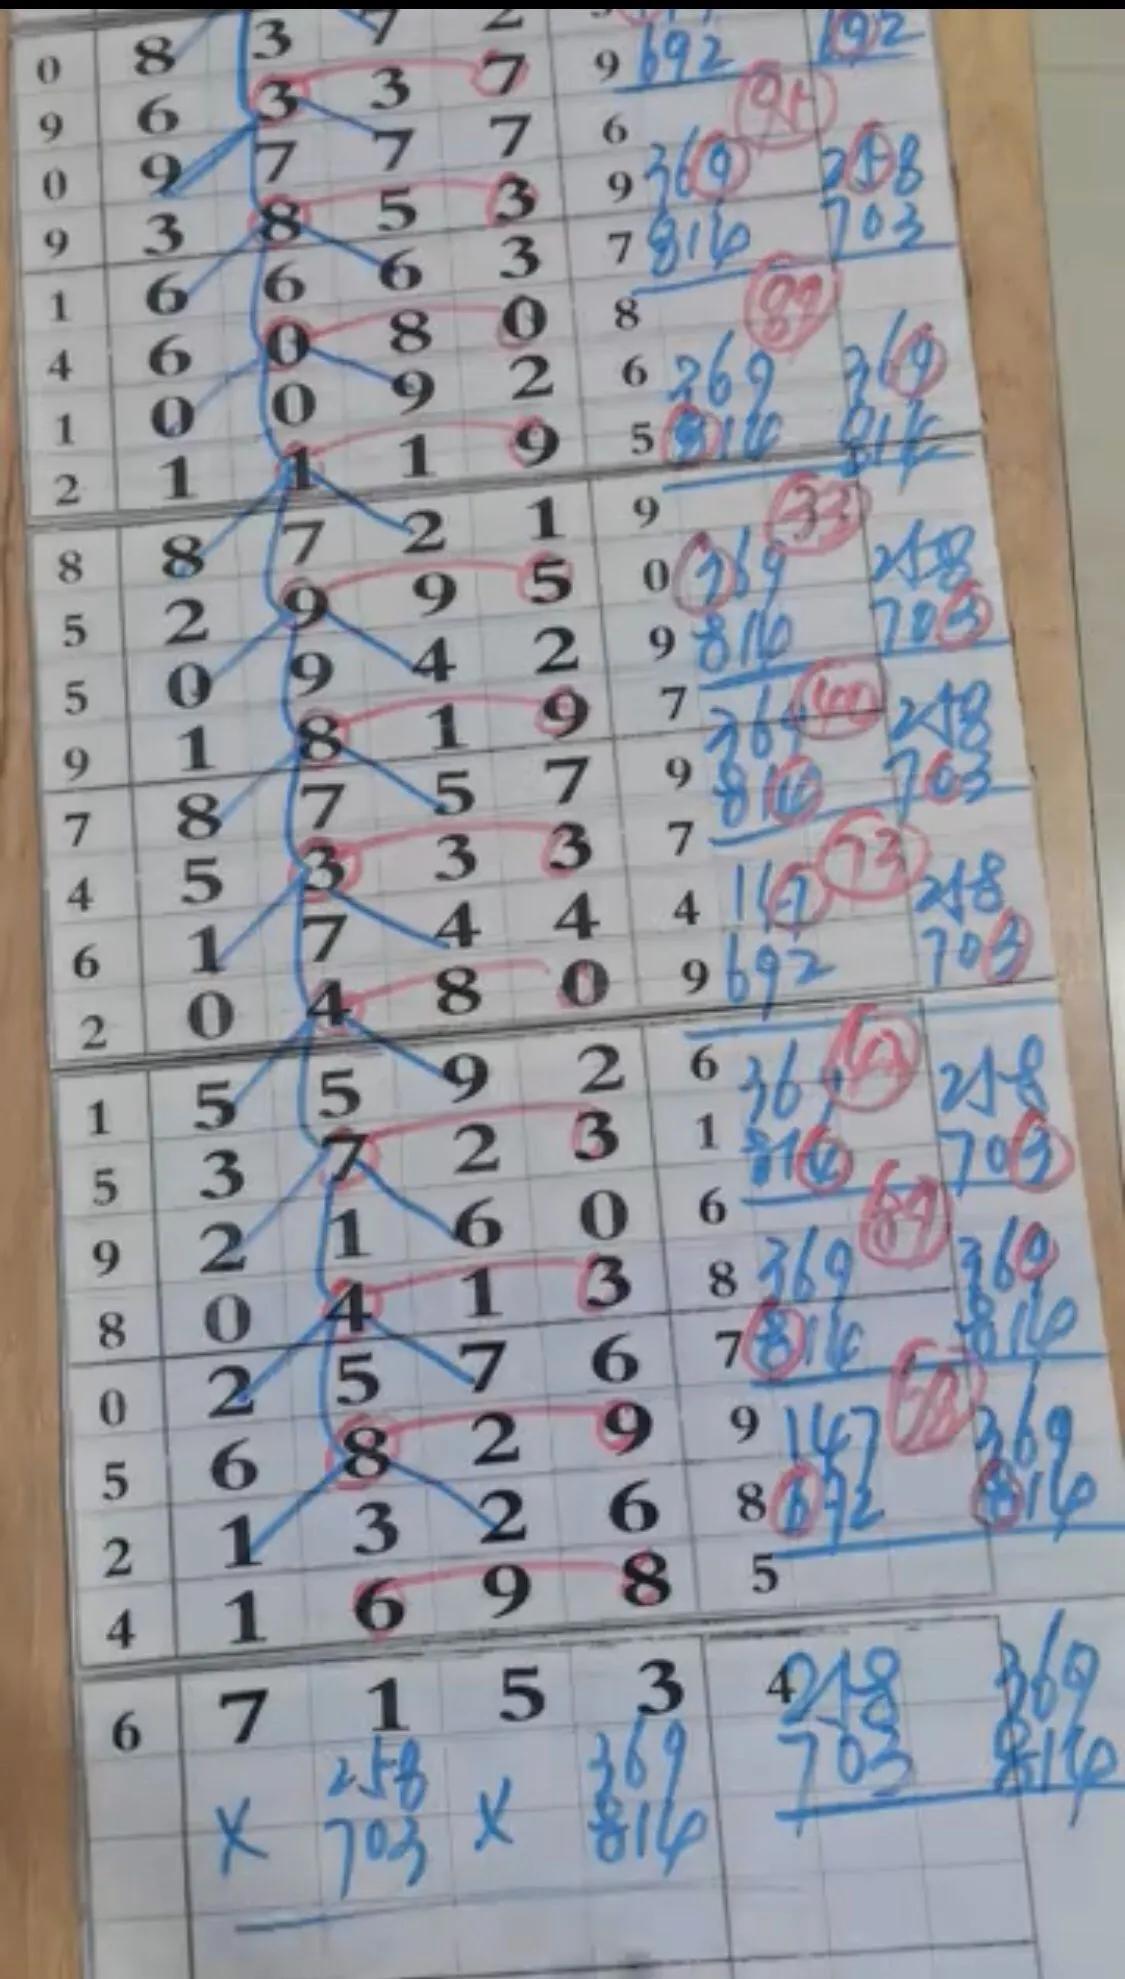 0 8 3 7 2
9 6 3 3 7 9 692 192
0 9 7 7 7 6
9 3 8 5 3 9 369 258
1 6 6 6 3 7 816 703
4 6 0 8 0 8 89
1 0 0 9 2 6 369 369
2 1 1 1 9 5 814 814
8 8 7 2 1 9 33
5 2 9 9 5 0 369 258
5 0 9 4 2 9 816 703
9 1 8 1 9 7 369 258
7 8 7 5 7 9 816 703
4 5 3 3 3 7 73
6 1 7 4 4 4 147 258
2 0 4 8 0 9 692 703
1 5 5 9 2 6 369 258
5 3 7 2 3 1 816 703
9 2 1 6 0 6 89
8 0 4 1 3 8 369 369
0 2 5 7 6 7 816 816
5 6 8 2 9 9 147 369
2 1 3 2 6 8 692 816
4 1 6 9 8 5
6 7 1 5 3 4 258 369
703 816
258 369
x 703 x 816